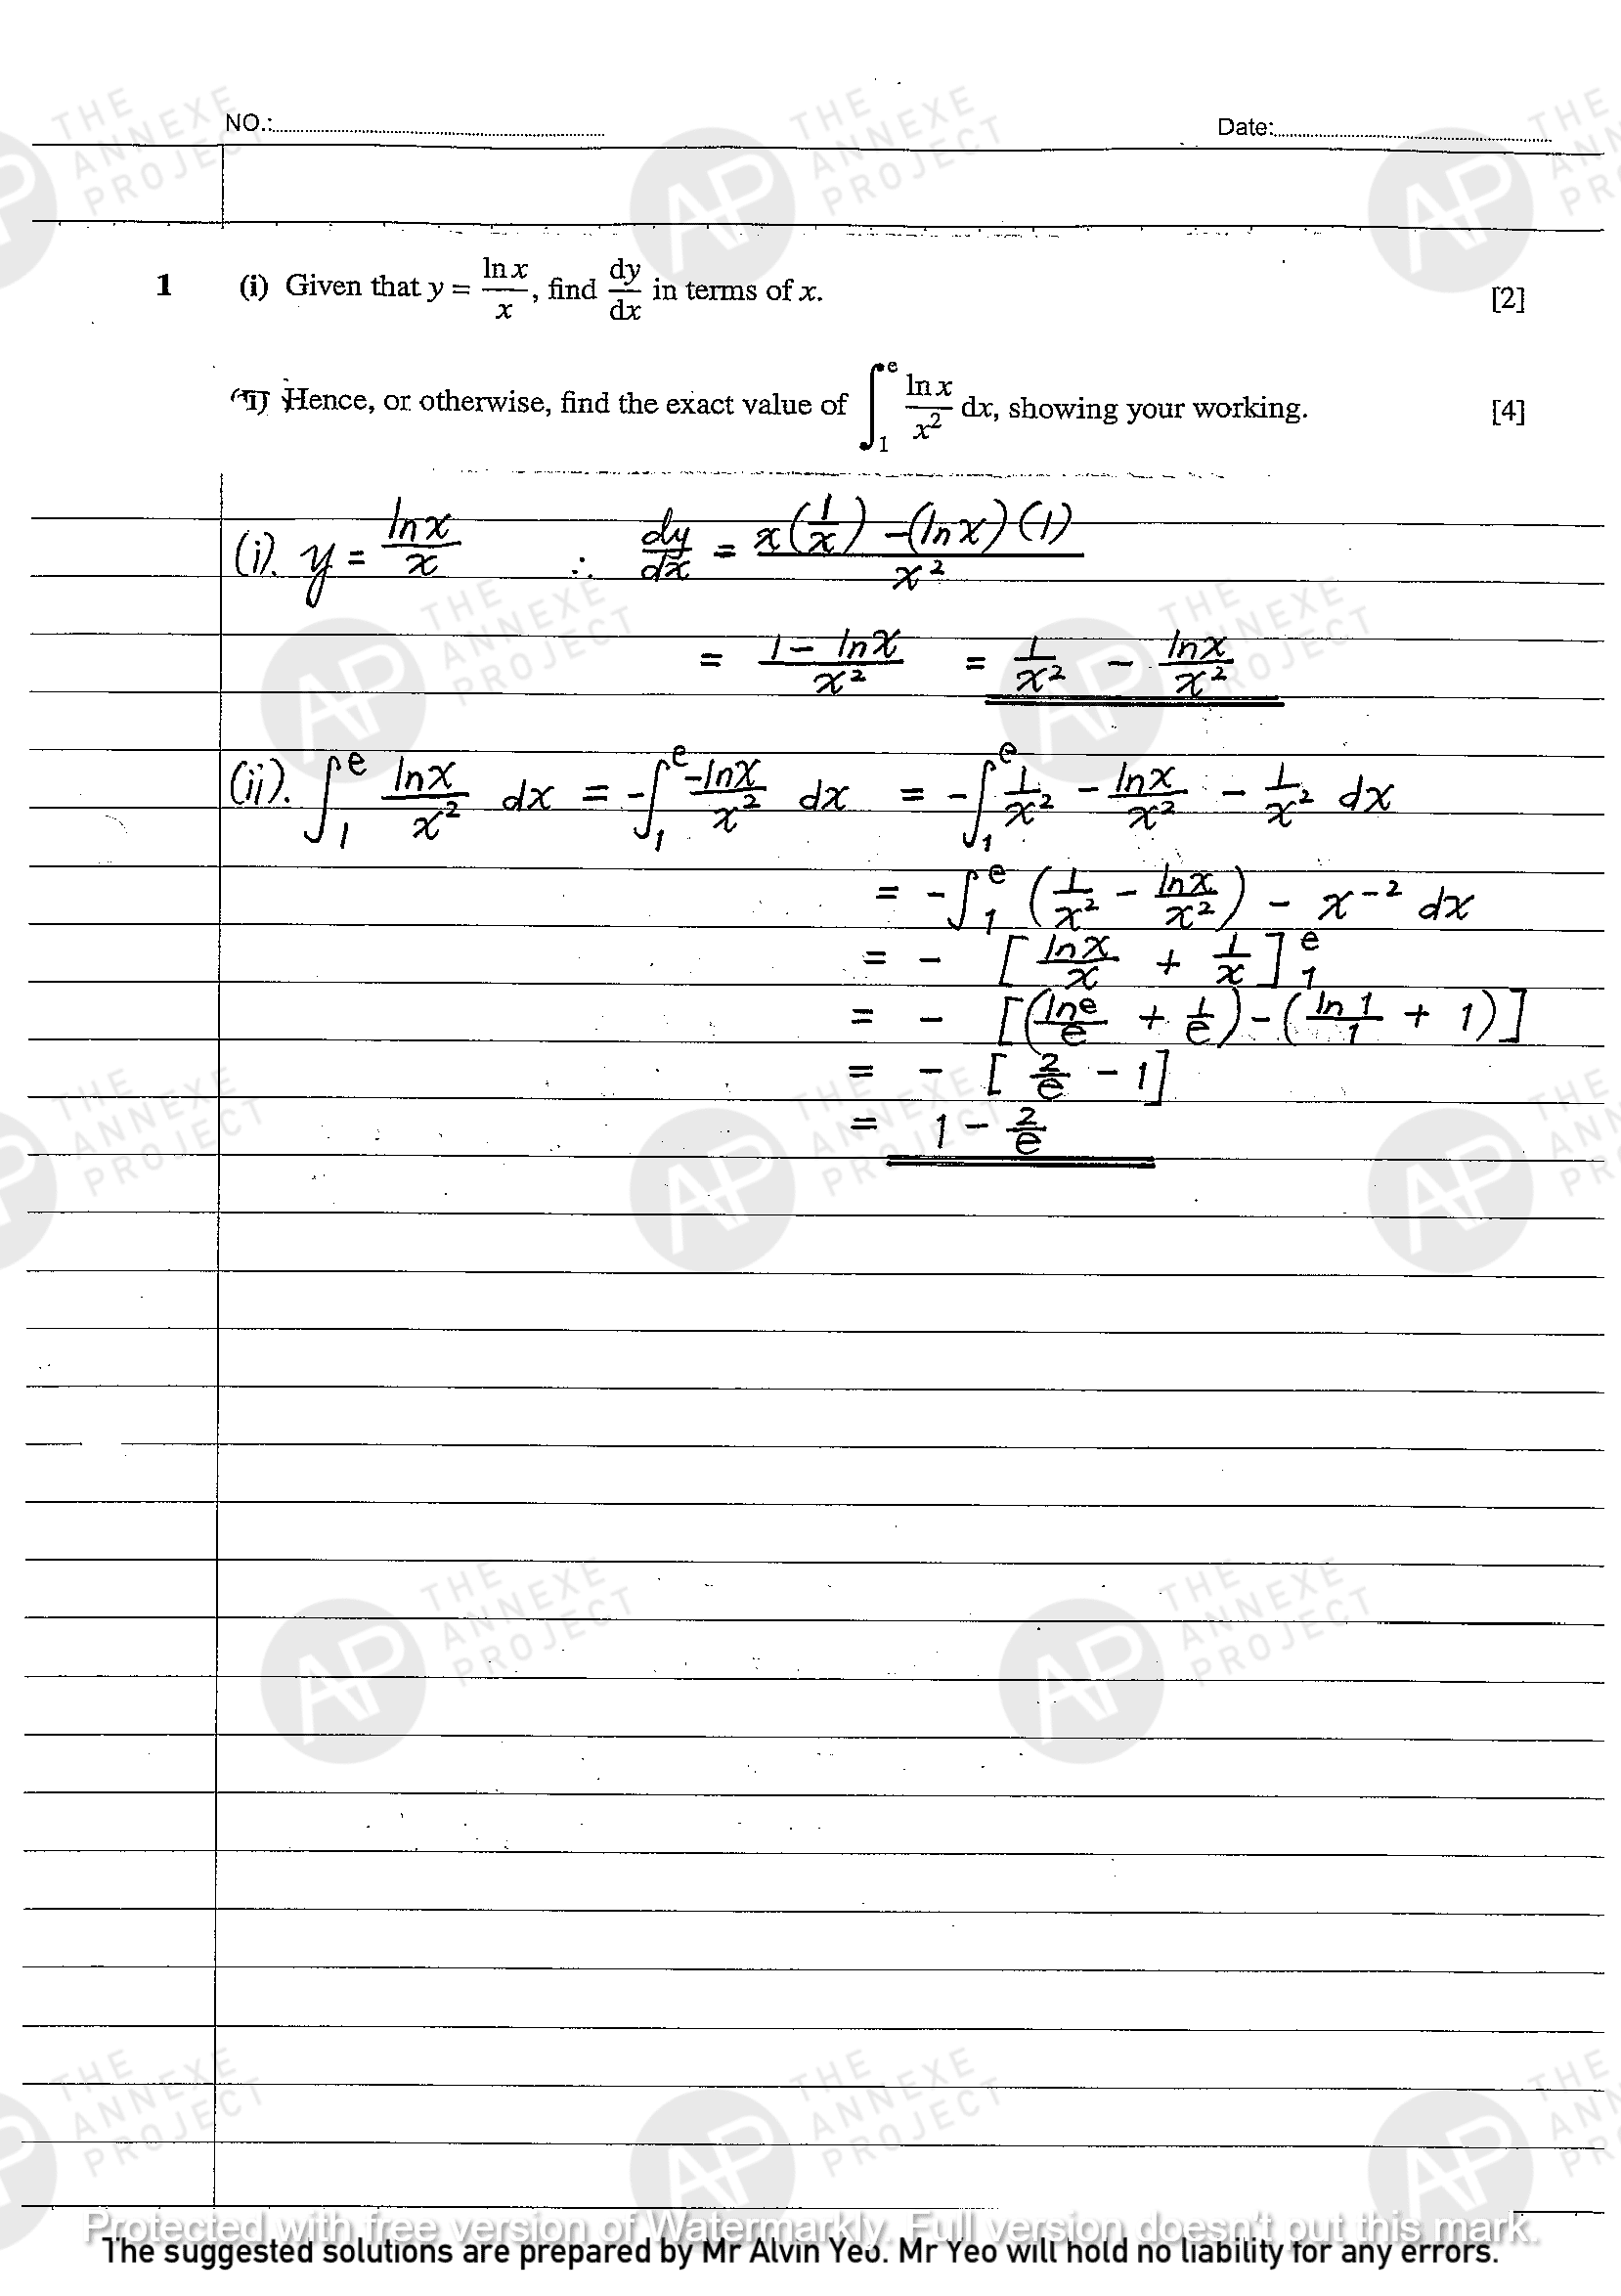 NO.: Date:
1 (i) Given that y = ln x / x, find dy/dx in terms of x. [2]
(ii) Hence, or otherwise, find the exact value of ∫₁ᵉ ln x / x² dx, showing your working. [4]
(i). y = ln x / x ∴ dy/dx = (x(1/x) − (ln x)(1)) / x²
= (1 − ln x) / x² = 1/x² − ln x / x²
(ii). ∫₁ᵉ ln x / x² dx = −∫₁ᵉ −ln x / x² dx = −∫₁ᵉ 1/x² − ln x / x² − 1/x² dx
= −∫₁ᵉ (1/x² − ln x / x²) − x⁻² dx
= − [ln x / x + 1/x]₁ᵉ
= − [(ln e / e + 1/e) − (ln 1 / 1 + 1)]
= − [2/e − 1]
= 1 − 2/e
THE ANNEXE PROJECT
AP
Protected with free version of Watermarkly. Full version doesn't put this mark.
The suggested solutions are prepared by Mr Alvin Yeo. Mr Yeo will hold no liability for any errors.